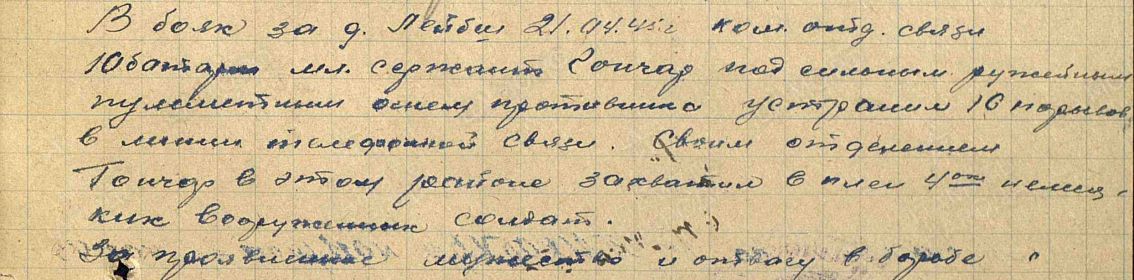 В боях за д. Лейбш 21.04.45г ком. отд. связи
10 батареи мл. сержант Гончар под сильным ружейным
пулеметным огнем противника устранил 16 порывов
в линии телефонной связи. Своим отделением
Гончар в этом районе захватил в плен 4ех немец-
ких вооруженных солдат.
За проявленное мужество и отвагу в борьбе